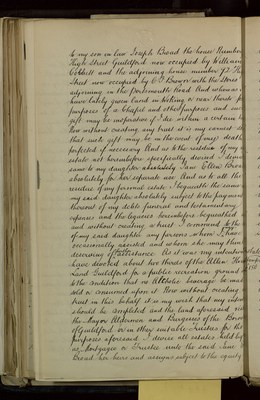 to my son in law Joseph Broad the house Number
High Street Guildford now occupied by William
and the adjoining house number 92
Street now occupied by Brown with the Stores
adjoining in the Portsmouth Road And whereas I
have lately given land in Kiting or near thereto for
purposes of a Chapel and other purposes and such
gift may be inoperative if I die within a certain
Now without creating any trust it is my earnest
that such gift may be in the event of my death
perfected if necessary And as to the residue of my
estate not hereinbefore specifically devised I devise
same to my daughter Jane Ellen Broad
absolutely for her separate use And as to all the
residue of my personal estate I bequeath the same
my said daughter absolutely subject to the payment
thereout of my debts funeral and testamentary
expenses and the legacies hereinbefore bequeathed
and without creating a trust I commend to the
of my said daughter any persons whom I have
occasionally assisted and whom she may think
deserving of assistance As it was my intention
have devoted about two thirds of the Allen House
Land Guildford for a public recreation ground
to the condition that no Alcoholic beverage be
sold or consumed upon it Now without creating a
trust in this behalf it is my wish that my
should be completed and the land aforesaid
the Mayor Aldermen and Burgesses of the Borough
of Guildford or in other suitable Trustees for the
purposes aforesaid I devise all estates held by
as Mortgagee or Trustee unto the said Jane
Broad her heirs and assigns subject to the equity